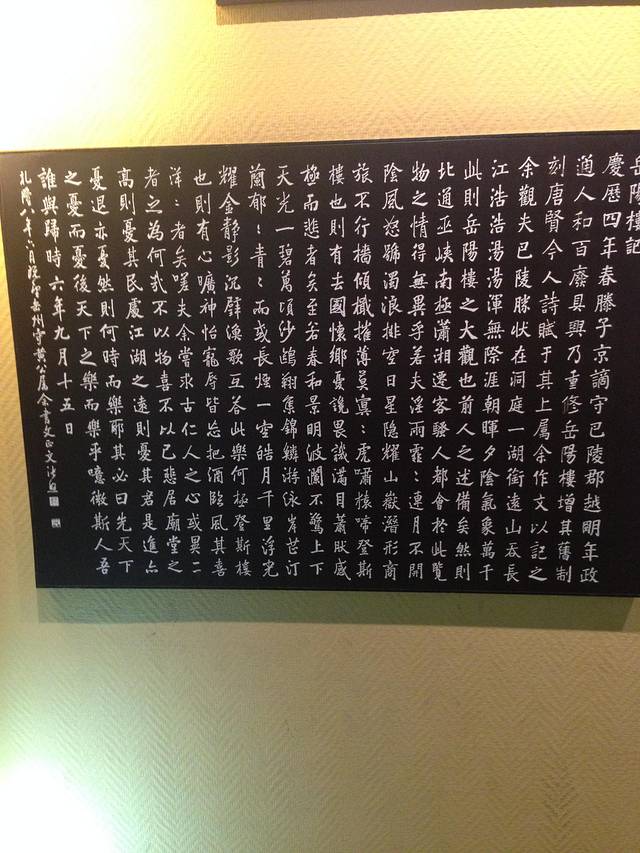 岳陽樓記
慶歷四年春滕子京謫守巴陵郡越明年政
通人和百廢具興乃重修岳陽樓增其舊制
刻唐賢今人詩賦于其上屬余作文以記之
余觀夫巴陵勝狀在洞庭一湖銜遠山吞長
江浩浩湯湯渾無際涯朝暉夕陰氣象萬千
此則岳陽樓之大觀也前人之述備矣然則
北通巫峽南極瀟湘遷客騷人都會於此覽
物之情得無異乎若夫淫雨霏〻連月不開
陰風怒號濁浪排空日星隱耀山嶽潛形商
旅不行檣傾檝摧薄莫冥〻虎嘯猿啼登斯
樓也則有去國懷鄉憂讒畏譏滿目蕭然感
極而悲者矣至若春和景明波瀾不驚上下
天光一碧萬頃沙鷗翔集錦鱗游泳岸芷汀
蘭郁〻青〻而或長煙一空皓月千里浮光
耀金靜影沉璧漁歌互答此樂何極登斯樓
也則有心曠神怡寵辱皆忘把酒臨風其喜
洋〻者矣嗟夫余嘗求古仁人之心或異二
者之為何哉不以物喜不以己悲居廟堂之
高則憂其民處江湖之遠則憂其君是進亦
憂退亦憂然則何時而樂耶其必曰先天下
之憂而憂後天下之樂而樂乎噫微斯人吾
誰與歸時六年九月十五日
乾隆八年六月岳州守黃公屬余書